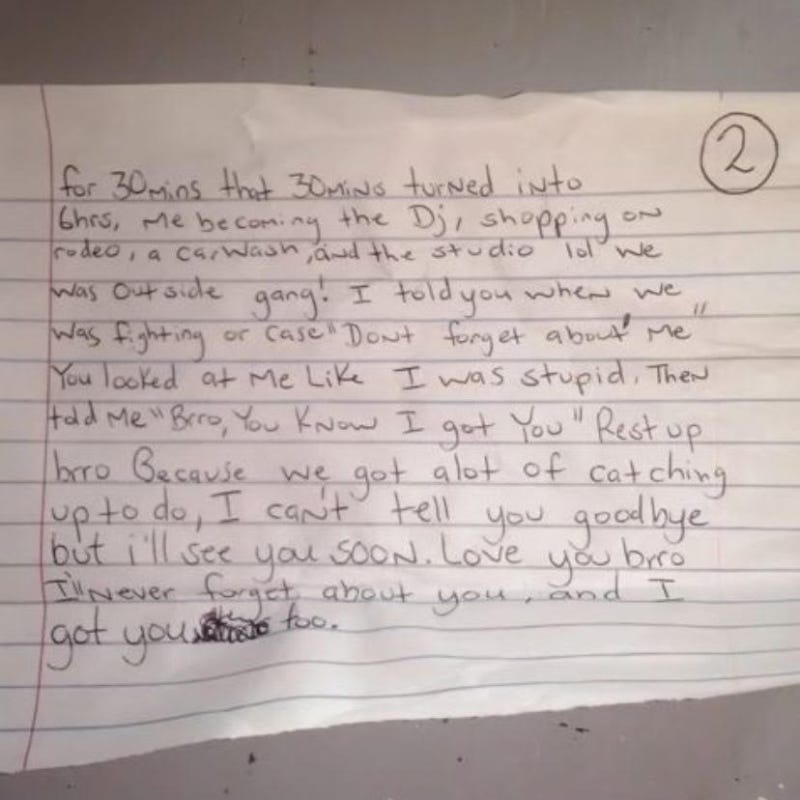 2
for 30mins that 30mins turned into
6hrs, me becoming the Dj, shopping on
rodeo, a carwash, and the studio lol we
was outside gang! I told you when we
was fighting or case "Dont forget about me"
You looked at me like I was stupid. Then
told me "Brro, You know I got You" Rest up
brro Because we got alot of catching
up to do, I can't tell you goodbye
but i'll see you soon. Love you brro
I'll never forget about you, and I
got you too.